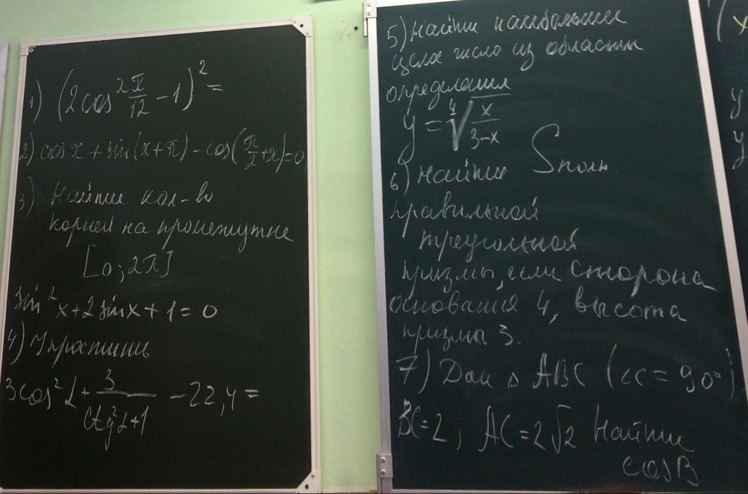 1) (2cos² π/12 - 1)² =
2) cos x + sin(x+π) - cos(π/2+x)=0
3) Найти кол-во
корней на промежутке
[0; 2π]
sin²x+2sinx+1=0
4) Упростить
3cos²α + 3/(ctg²α+1) - 22,4=
5) Найти наибольшее
целое число из области
определения
y = ⁴√(x/(3-x))
6) Найти Sполн.
правильной
треугольной
призмы, если сторона
основания 4, высота
призмы 3.
7) Дан △ABC (∠C=90°)
BC=2; AC=2√2 Найти
cosB
(x
y
y